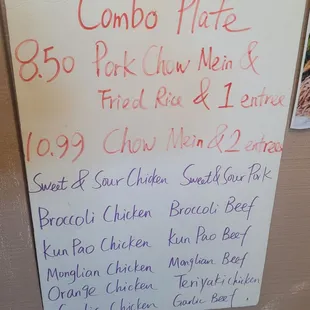 Combo Plate
8.50 Pork Chow Mein &
Fried Rice & 1 entree
10.99 Chow Mein & 2 entrees
Sweet & Sour Chicken Sweet & Sour Pork
Broccoli Chicken Broccoli Beef
Kun Pao Chicken Kun Pao Beef
Monglian Chicken Monglian Beef
Orange Chicken Teriyaki chicken
Chicken Garlic Beef